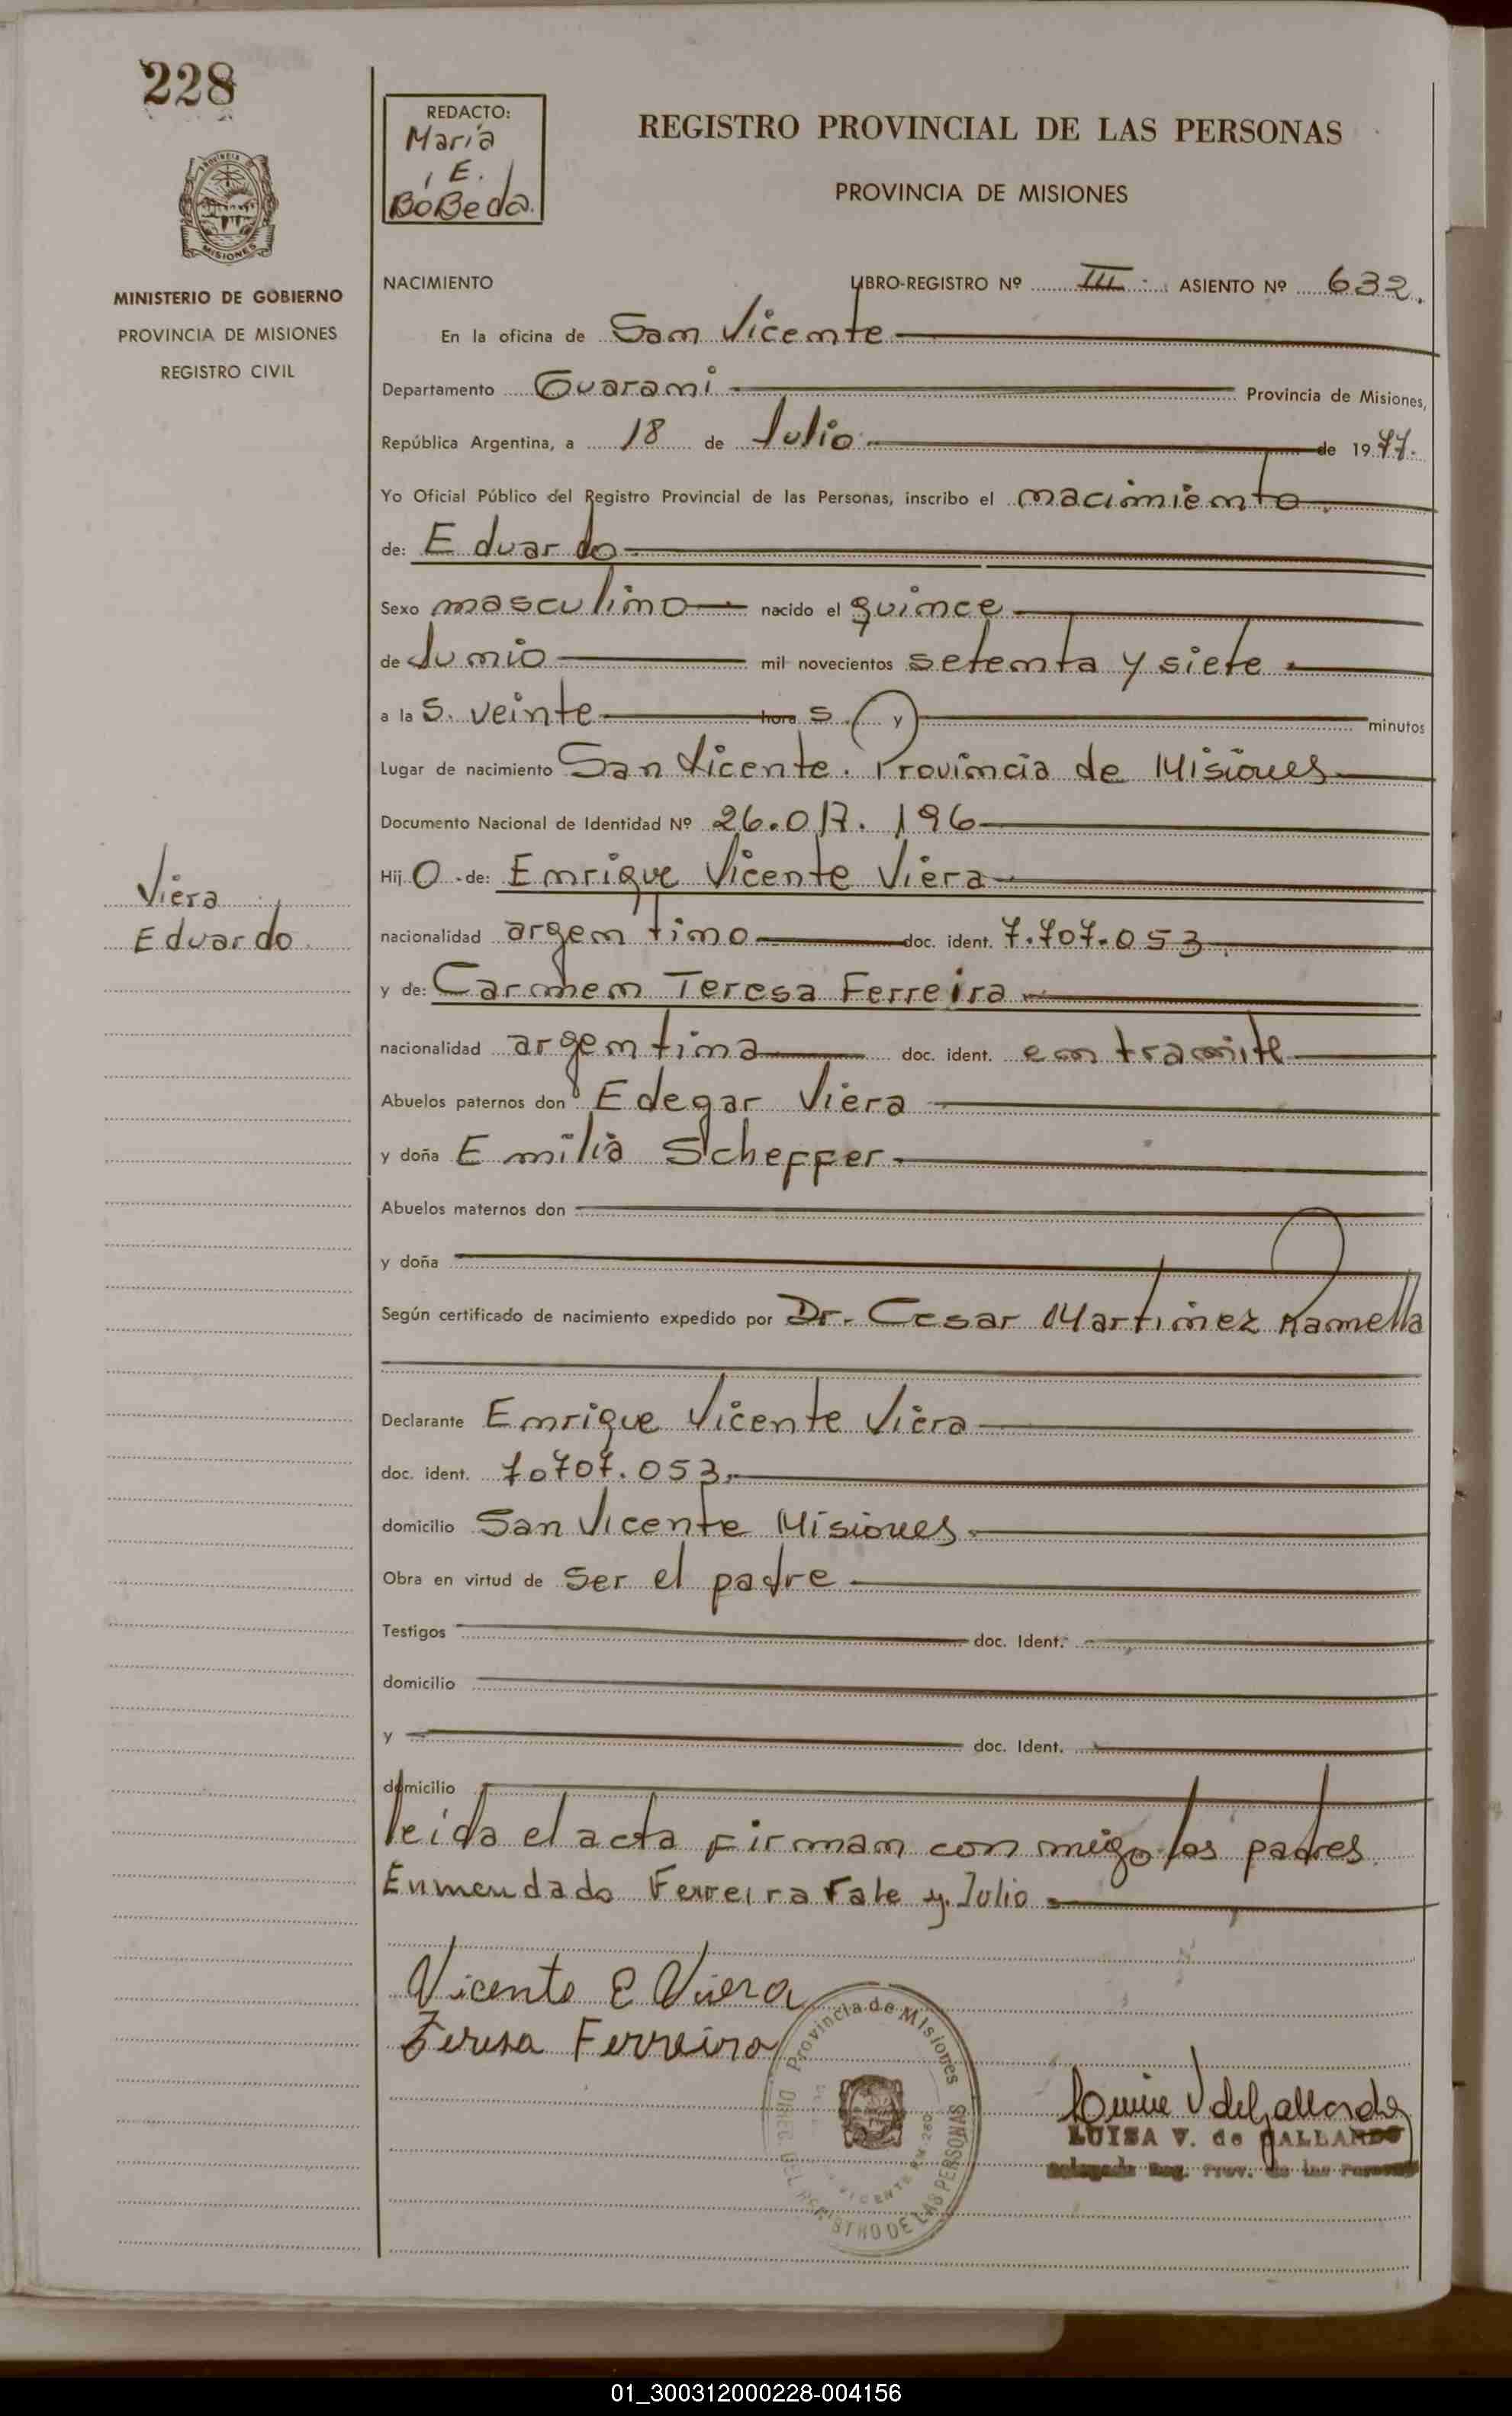 228
REDACTO:
Maria
E.
BoBeda.
REGISTRO PROVINCIAL DE LAS PERSONAS
PROVINCIA DE MISIONES
MISIONES
MINISTERIO DE GOBIERNO
PROVINCIA DE MISIONES
REGISTRO CIVIL
NACIMIENTO LIBRO-REGISTRO Nº III ASIENTO Nº 632.
En la oficina de San Vicente
Departamento Guarani Provincia de Misiones,
República Argentina, a 18 de Julio de 1977.
Yo Oficial Público del Registro Provincial de las Personas, inscribo el nacimiento
de: Eduardo
Sexo masculino nacido el quince
de Junio mil novecientos setenta y siete
a la s. veinte hora s. y minutos
Lugar de nacimiento San Vicente. Provincia de Misiones
Documento Nacional de Identidad Nº 26.017.196
Hij o de: Enrique Vicente Viera
Viera
Eduardo
nacionalidad argentino doc. ident. 7.707.053
y de: Carmen Teresa Ferreira
nacionalidad argentina doc. ident. en tramite
Abuelos paternos don Edegar Viera
y doña Emilia Scheffer
Abuelos maternos don
y doña
Según certificado de nacimiento expedido por Dr. Cesar Martinez Ramella
Declarante Enrique Vicente Viera
doc. ident. 7.707.053.
domicilio San Vicente Misiones
Obra en virtud de ser el padre
Testigos doc. Ident.
domicilio
y doc. Ident.
domicilio
leida el acta firman con migo los padres
Enmendado Ferreira Vale y Julio
Vicente E Viera
Teresa Ferreira
Provincia de Misiones
DIREC. DEL REGISTRO DE LAS PERSONAS
LUISA V. de GALLARDO
Delegada Reg. Prov. de las Personas
01_300312000228-004156